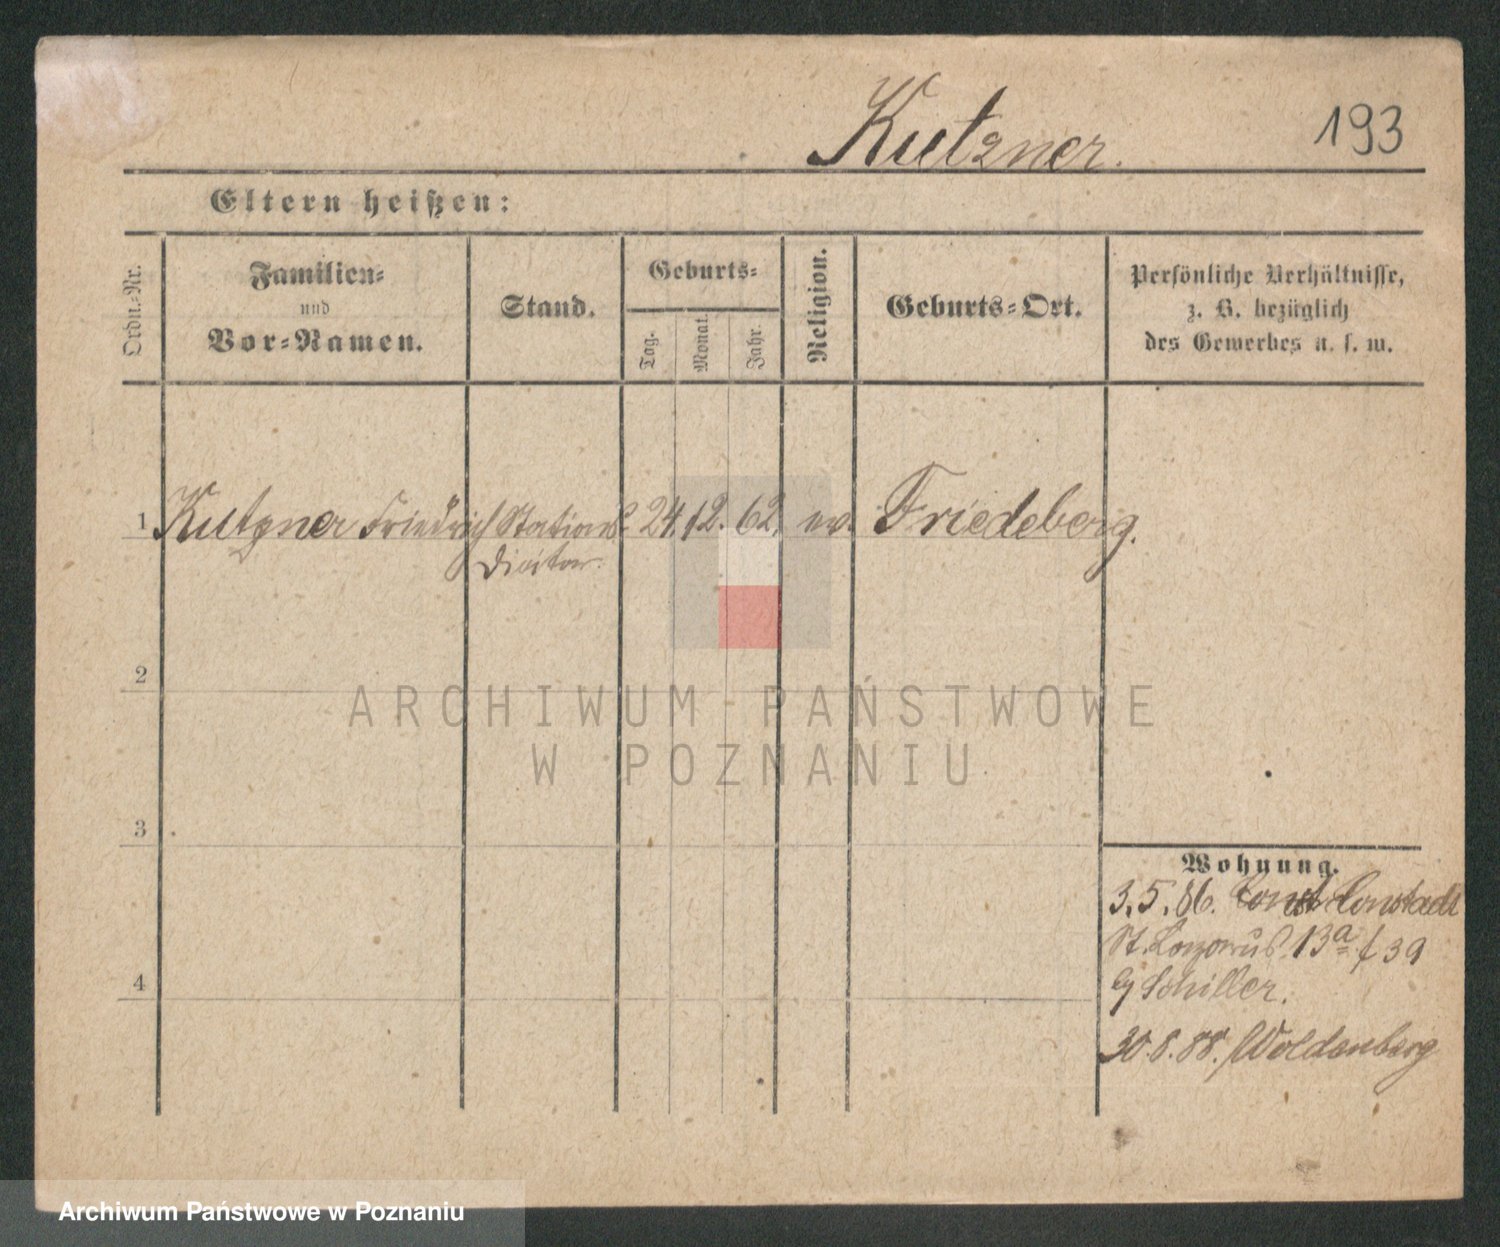 Kutzner.
193
Eltern heißen:
Ordn.-Nr.
Familien-
und
Vor-Namen.
Stand.
Geburts-
Tag.
Monat.
Jahr.
Religion.
Geburts-Ort.
Persönliche Verhältnisse,
z. B. bezüglich
des Gewerbes u. s. w.
1 Kutzner Friedrich Stations- 24. 12. 62. ev. Friedeberg.
2
ARCHIWUM PAŃSTWOWE
W POZNANIU
3
4
Wohnung.
3. 5. 86. Constadt
St. Lazarus 13a
Schiller.
30. 8. 88. Woldenberg
Archiwum Państwowe w Poznaniu